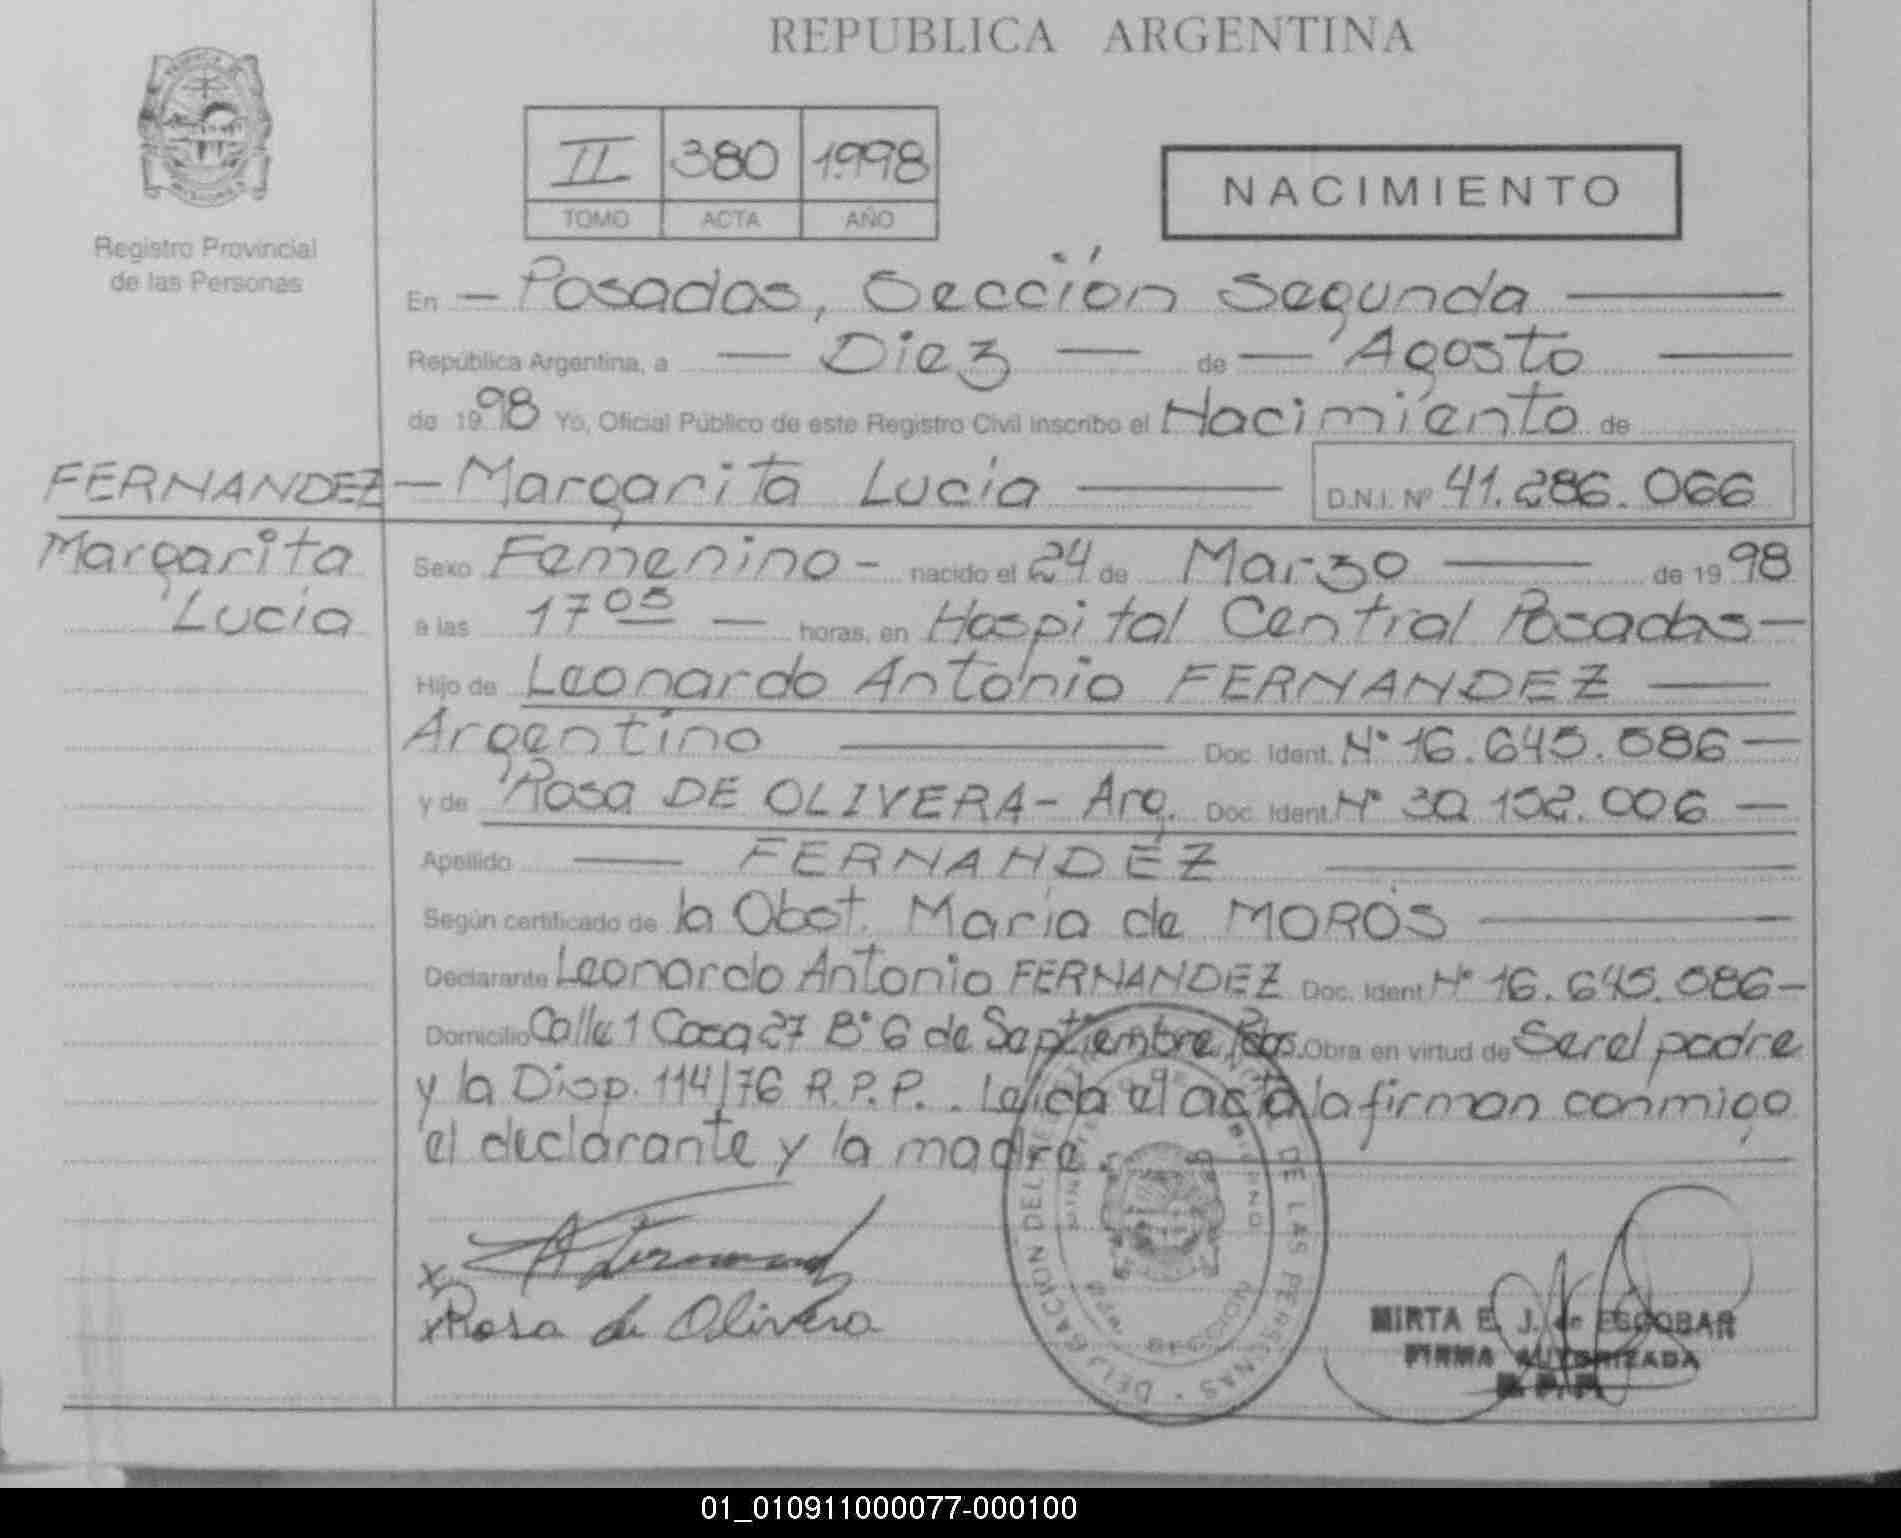 REPUBLICA ARGENTINA
II 380 1998
TOMO ACTA AÑO
NACIMIENTO
Registro Provincial
de las Personas
En — Posadas, Sección Segunda —
República Argentina, a — Diez — de — Agosto —
de 1998 Yo, Oficial Público de este Registro Civil inscribo el Nacimiento de
FERNANDEZ — Margarita Lucia — D.N.I. Nº 41.286.066
Margarita
Lucia
Sexo Femenino - nacido el 24 de Marzo — de 1998
a las 17 05 — horas, en Hospital Central Posadas —
Hijo de Leonardo Antonio FERNANDEZ —
Argentino — Doc. Ident. Nº 16.645.586 —
y de Rosa DE OLIVERA - Arg. Doc. Ident. Nº 30.152.006 —
Apellido — FERNANDEZ —
Según certificado de la Obst. Maria de MOROS —
Declarante Leonardo Antonio FERNANDEZ Doc. Ident. Nº 16.645.586 -
Domicilio Calle 1 Casa 27 Bº 6 de Septiembre Pdas. Obra en virtud de Ser el padre
y la Disp. 114/76 R.P.P. . Leida el acta la firman conmigo
el declarante y la madre. —
x Rosa de Olivera
DELEGACION DEL REGISTRO PROVINCIAL DE LAS PERSONAS
MINISTERIO DE GOBIERNO
SECCION
MIRTA E. J. de ESCOBAR
FIRMA AUTORIZADA
R. P. P.
01_010911000077-000100